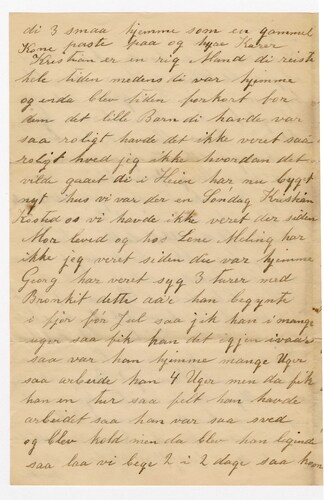 di 3 smaa hjemme som en gammel
Kone paste paa og hyre Karer
Kristian er en rig Mand di reiste
hele tiden medens di var hjemme
og enda blev tiden forkort for
dem det lille Barn di havde var
saa roligt havde det ikke veret saa
roligt hved jeg ikke hvordan det
vilde gaaet di i Hein har nu bygt
nyt hus vi var der en Søndag Kristian
os vi havde ikke veret der siden
Mor leved og hos Lene Meling har
ikke jeg veret siden die var hjemme
Georg har veret syg 3 turer med
Bronkit dette aar han begynte
i fjor før Jul saa gik han i mange
uger saa fik han det igjen i vaar
saa var han hjemme mange Uger
saa arbeide han 4 Uger men da fik
han en tur saa felt han havde
arbeidet saa han var sved
og blev kold men da blev han liginde
saa laa vi bege 2 i 2 dage saa kom